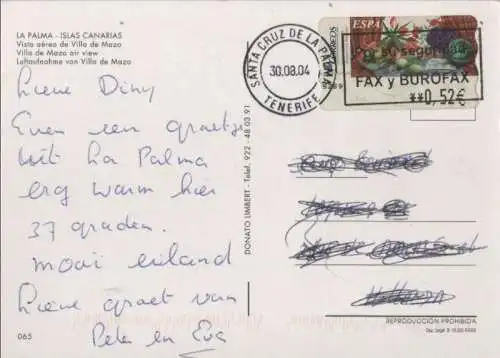 LA PALMA - ISLAS CANARIAS
Vista aérea de Villa de Mazo
Villa de Mazo air view
Luftaufnahme von Villa de Mazo
Lieve Diny
Even een groetje
uit La Palma
erg warm hier
37 graden.
mooi eiland
Lieve groet van
en Eva
065
DONATO LIMBERT - Telef. 922 - 48 03 91
SANTA CRUZ DE LA PALMA
30.08.04
TENERIFE
ESPA
CORREOS
Por su seguridad
FAX y BUROFAX
**0,52€
REPRODUCCIÓN PROHIBIDA